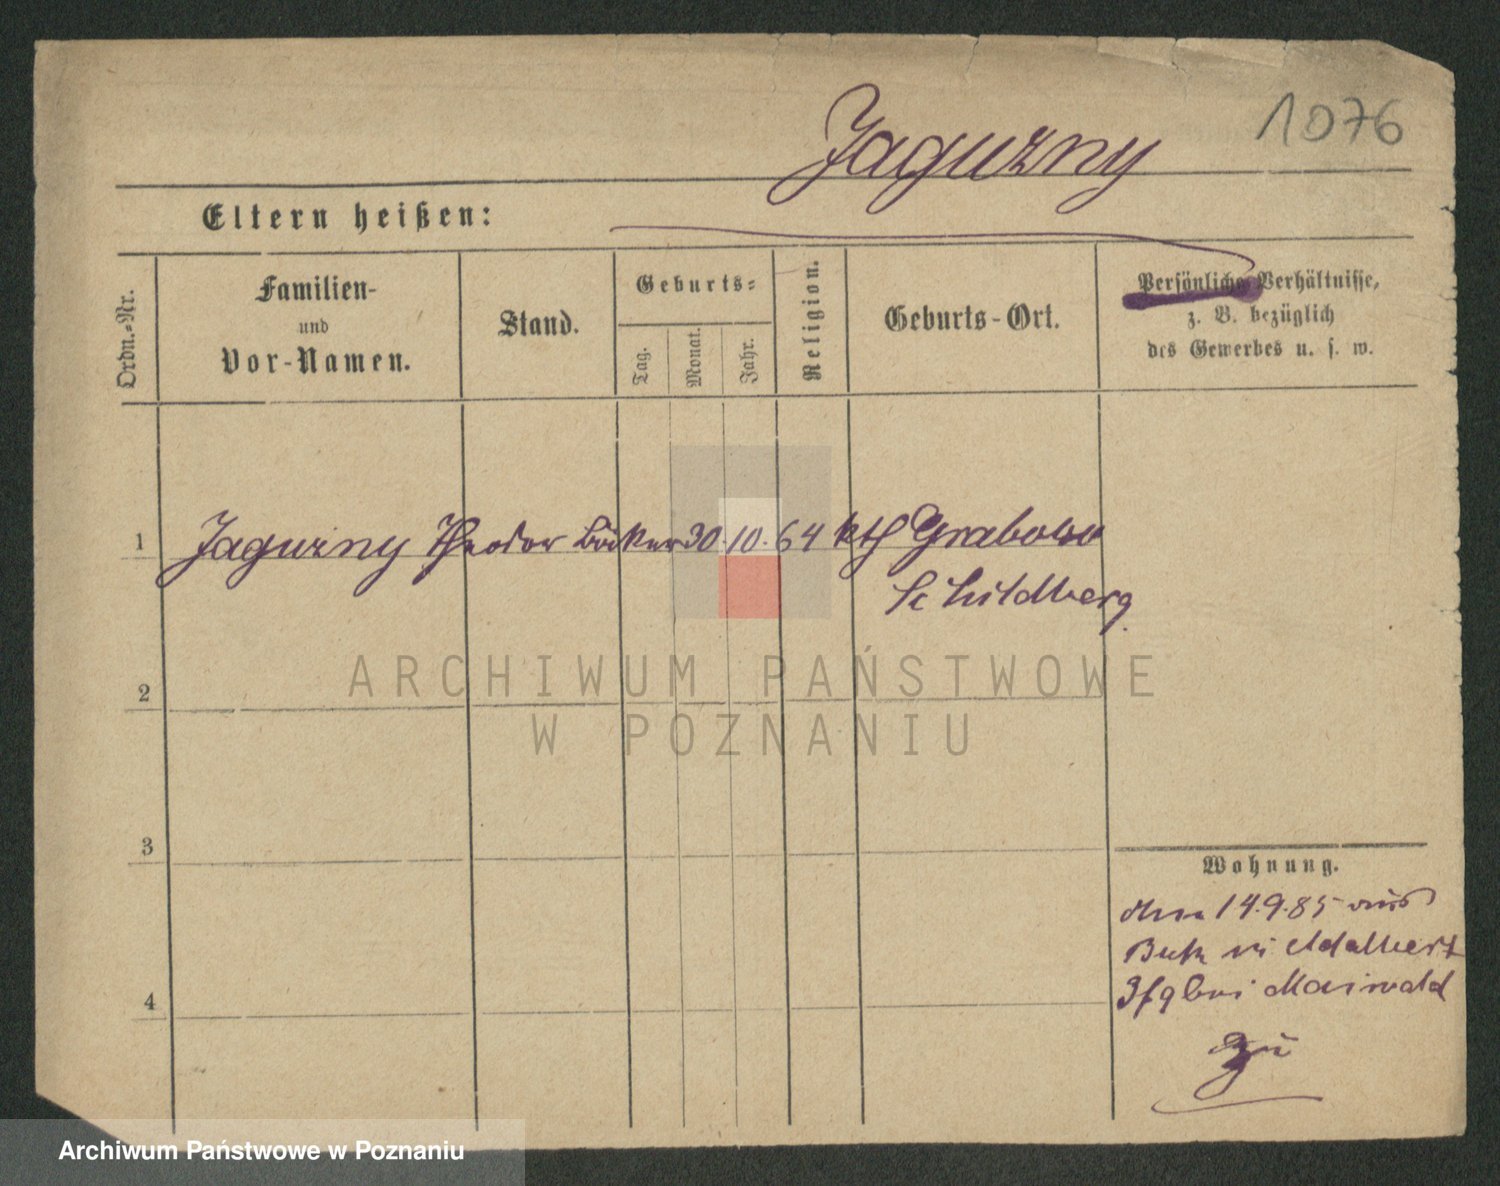 1076
Jaguzny
Eltern heißen:
Ordn.-Nr.
Familien-
und
Vor-Namen.
Stand.
Geburts-
Tag.
Monat.
Jahr.
Religion.
Geburts-Ort.
Persönliche Verhältnisse,
z. B. bezüglich
des Gewerbes u. s. w.
1 Jaguzny Theodor Bäcker 30. 10. 64 kth Grabow
Schildberg
2
3
4
Wohnung.
14.9.85 aus
Buk Adalbert
3/9 bei Maiwald
zu
ARCHIWUM PAŃSTWOWE
W POZNANIU
Archiwum Państwowe w Poznaniu